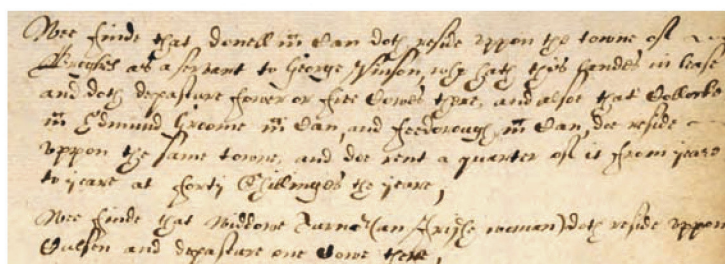 Wee finde that donell m Can doth reside vppon the towne of
as a servant to George Vinson, who hath this landes in lease
and doth depasture fower or five Cowes there, and alsoe that
m Edmund Groome m Can, and m Can, doe reside
vppon the same towne, and doe rent a quarter of it from yeare
to yeare at forty Shillinges the yeare,
Wee finde that Widdowe (an Irishe woman) doth reside vppon
and depasture one Cowe there,